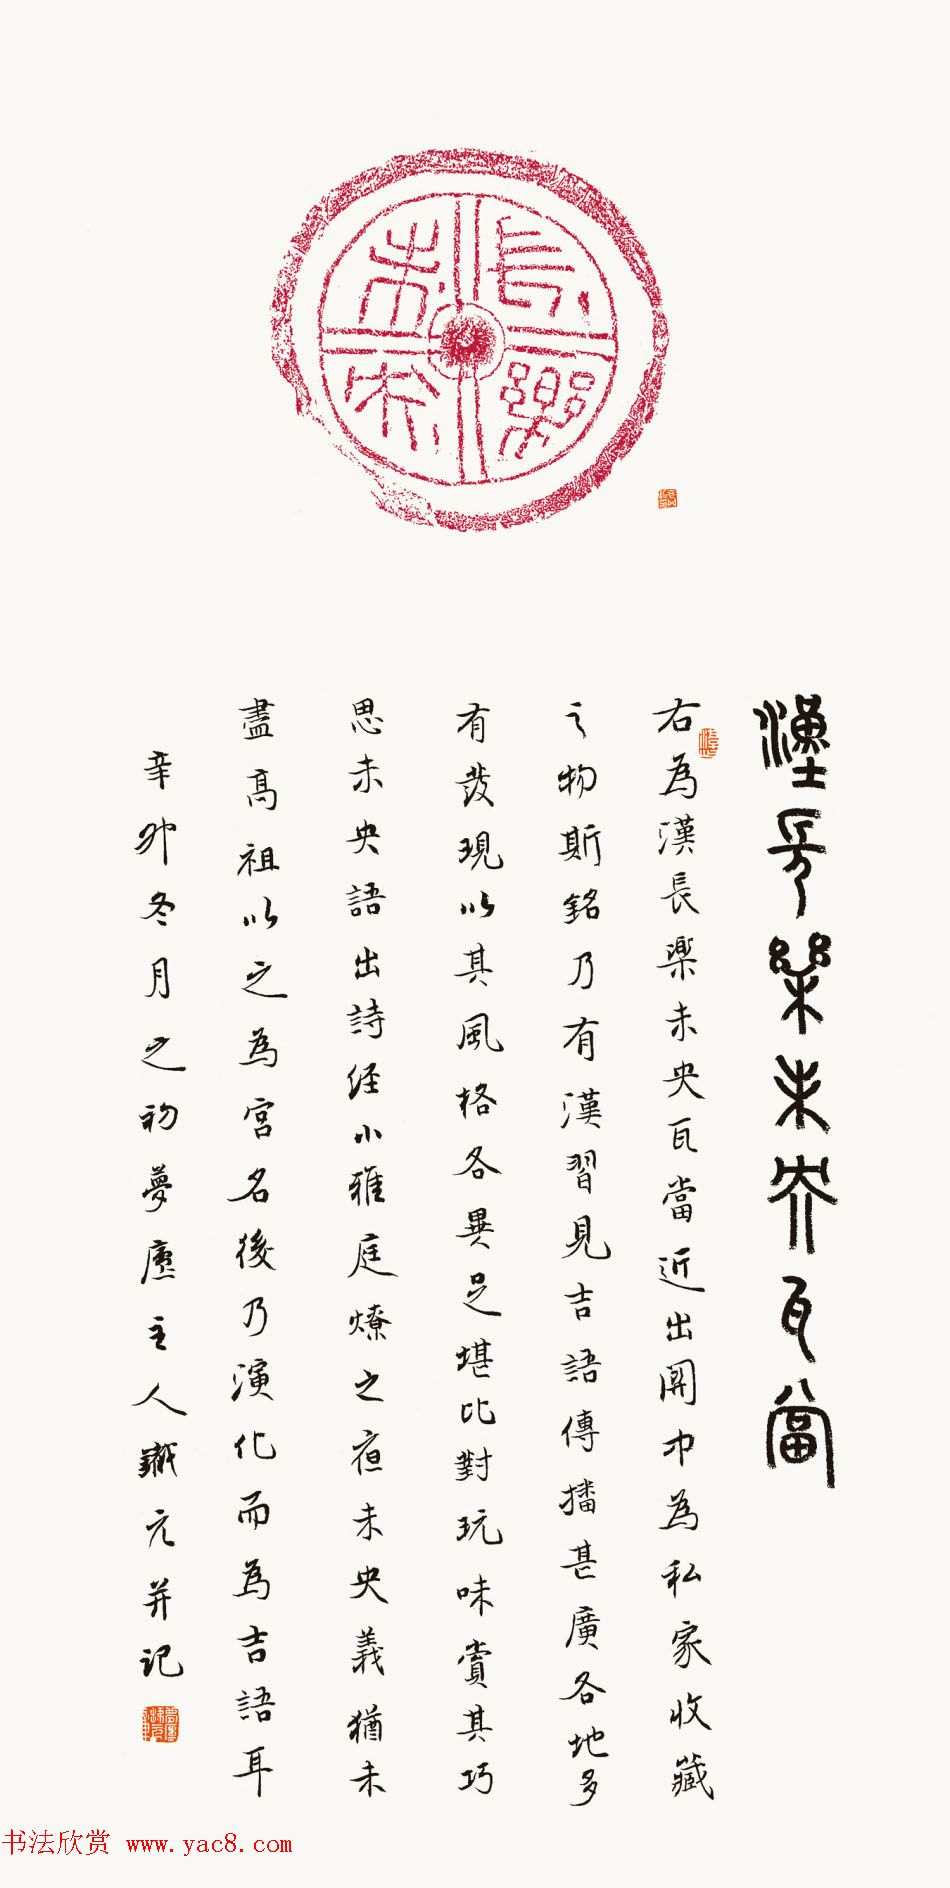 長樂未央
漢長樂未央瓦當
右為漢長樂未央瓦當近出關中為私家收藏
之物斯銘乃有漢習見吉語傳播甚廣各地多
有發現以其風格各異足堪比對玩味賞其巧
思未央語出詩経小雅庭燎之夜未央義猶未
盡高祖以之為宮名後乃演化而為吉語耳
辛卯冬月之初夢廬主人鐵元并記
书法欣赏 www.yac8.com